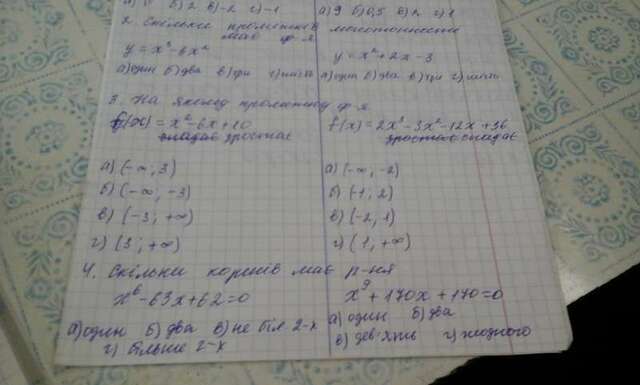 б) 2 в) -2 г) -1
а) 9 б) 0,5 в) 2 г) 1
2. Скільки проміжків монотонности
має ф-я
y = x³ - 6x²
y = x² + 2x - 3
а) один б) два в) три г)
а) один б) два в) три г)
3. На якому проміжку ф-я
f(x) = x² - 6x + 10
f(x) = 2x³ - 3x² - 12x + 36
спадає зростає
зростає спадає
а) (-∞; 3)
а) (-∞; -2)
б) (-∞; -3)
б) (-1; 2)
в) (-3; +∞)
в) (-2; 1)
г) (3; +∞)
г) (1; +∞)
4. Скільки коренів має р-ня
x⁶ - 63x + 62 = 0
x⁹ + 170x + 170 = 0
а) один б) два в) не біл 2-х
г) більше 2-х
а) один б) два
в) дев'ять г) жодного